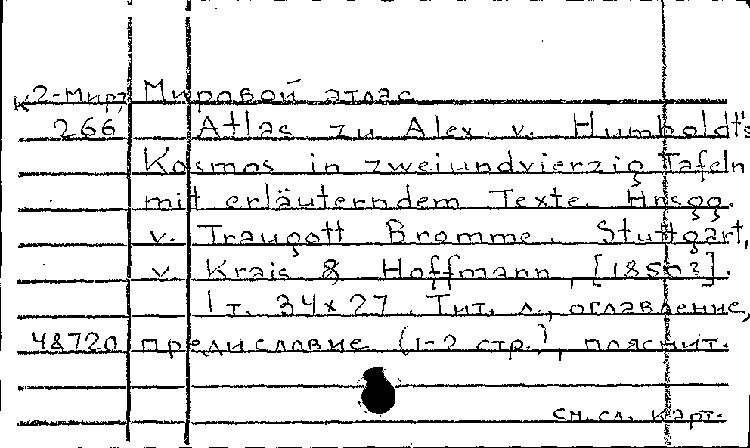 К2-Мир, Мировой атлас
266 Atlas zu Alex. v. Humboldt's
Kosmos in zweiundvierzig Tafeln
mit erläuterndem Texte. Hrsgg.
v. Traugott Bromme. Stuttgart,
v. Krais & Hoffmann, [185-?].
1 т. 34x27. Тит. л., оглавление,
48720 предисловие (1-2 стр.), пояснит.
см. сл. карт.